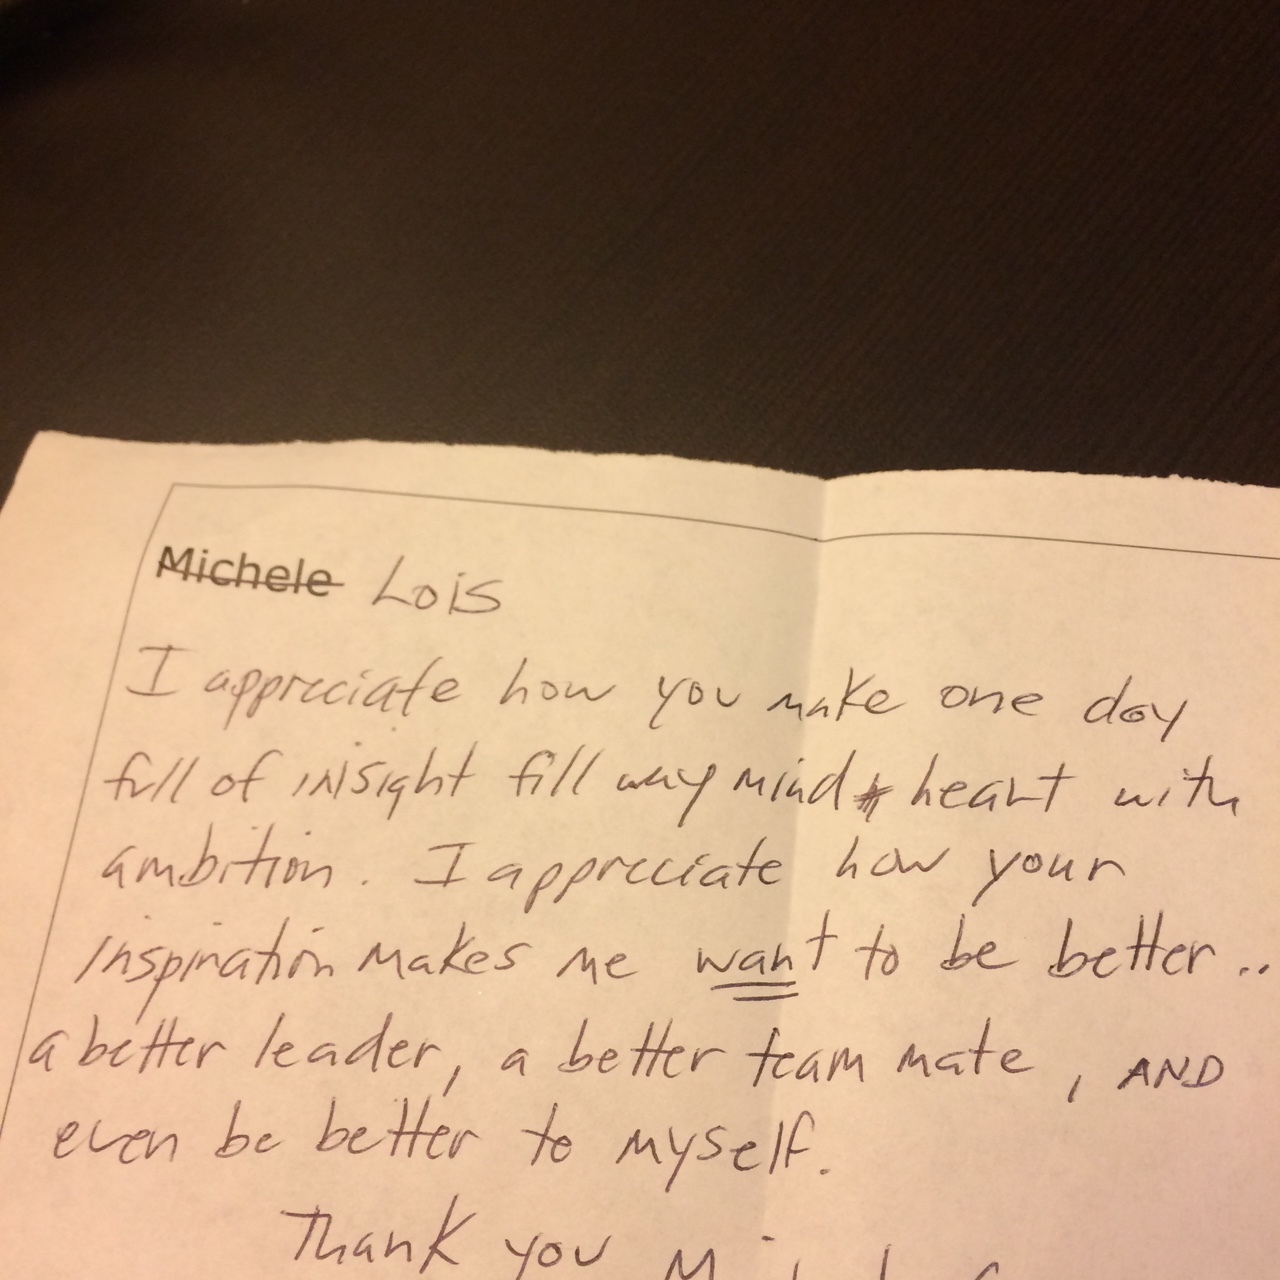 Michele Lois
I appreciate how you make one day
full of insight fill my mind & heart with
ambition. I appreciate how your
inspiration makes me want to be better..
a better leader, a better team mate, AND
even be better to myself.
Thank you